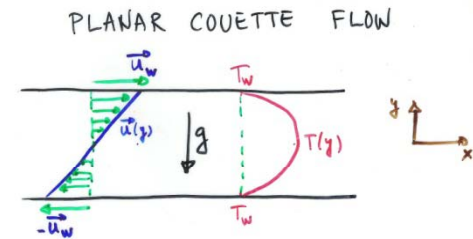 PLANAR COUETTE FLOW
u_w
T_w
u(y)
g
T(y)
y
x
-u_w
T_w